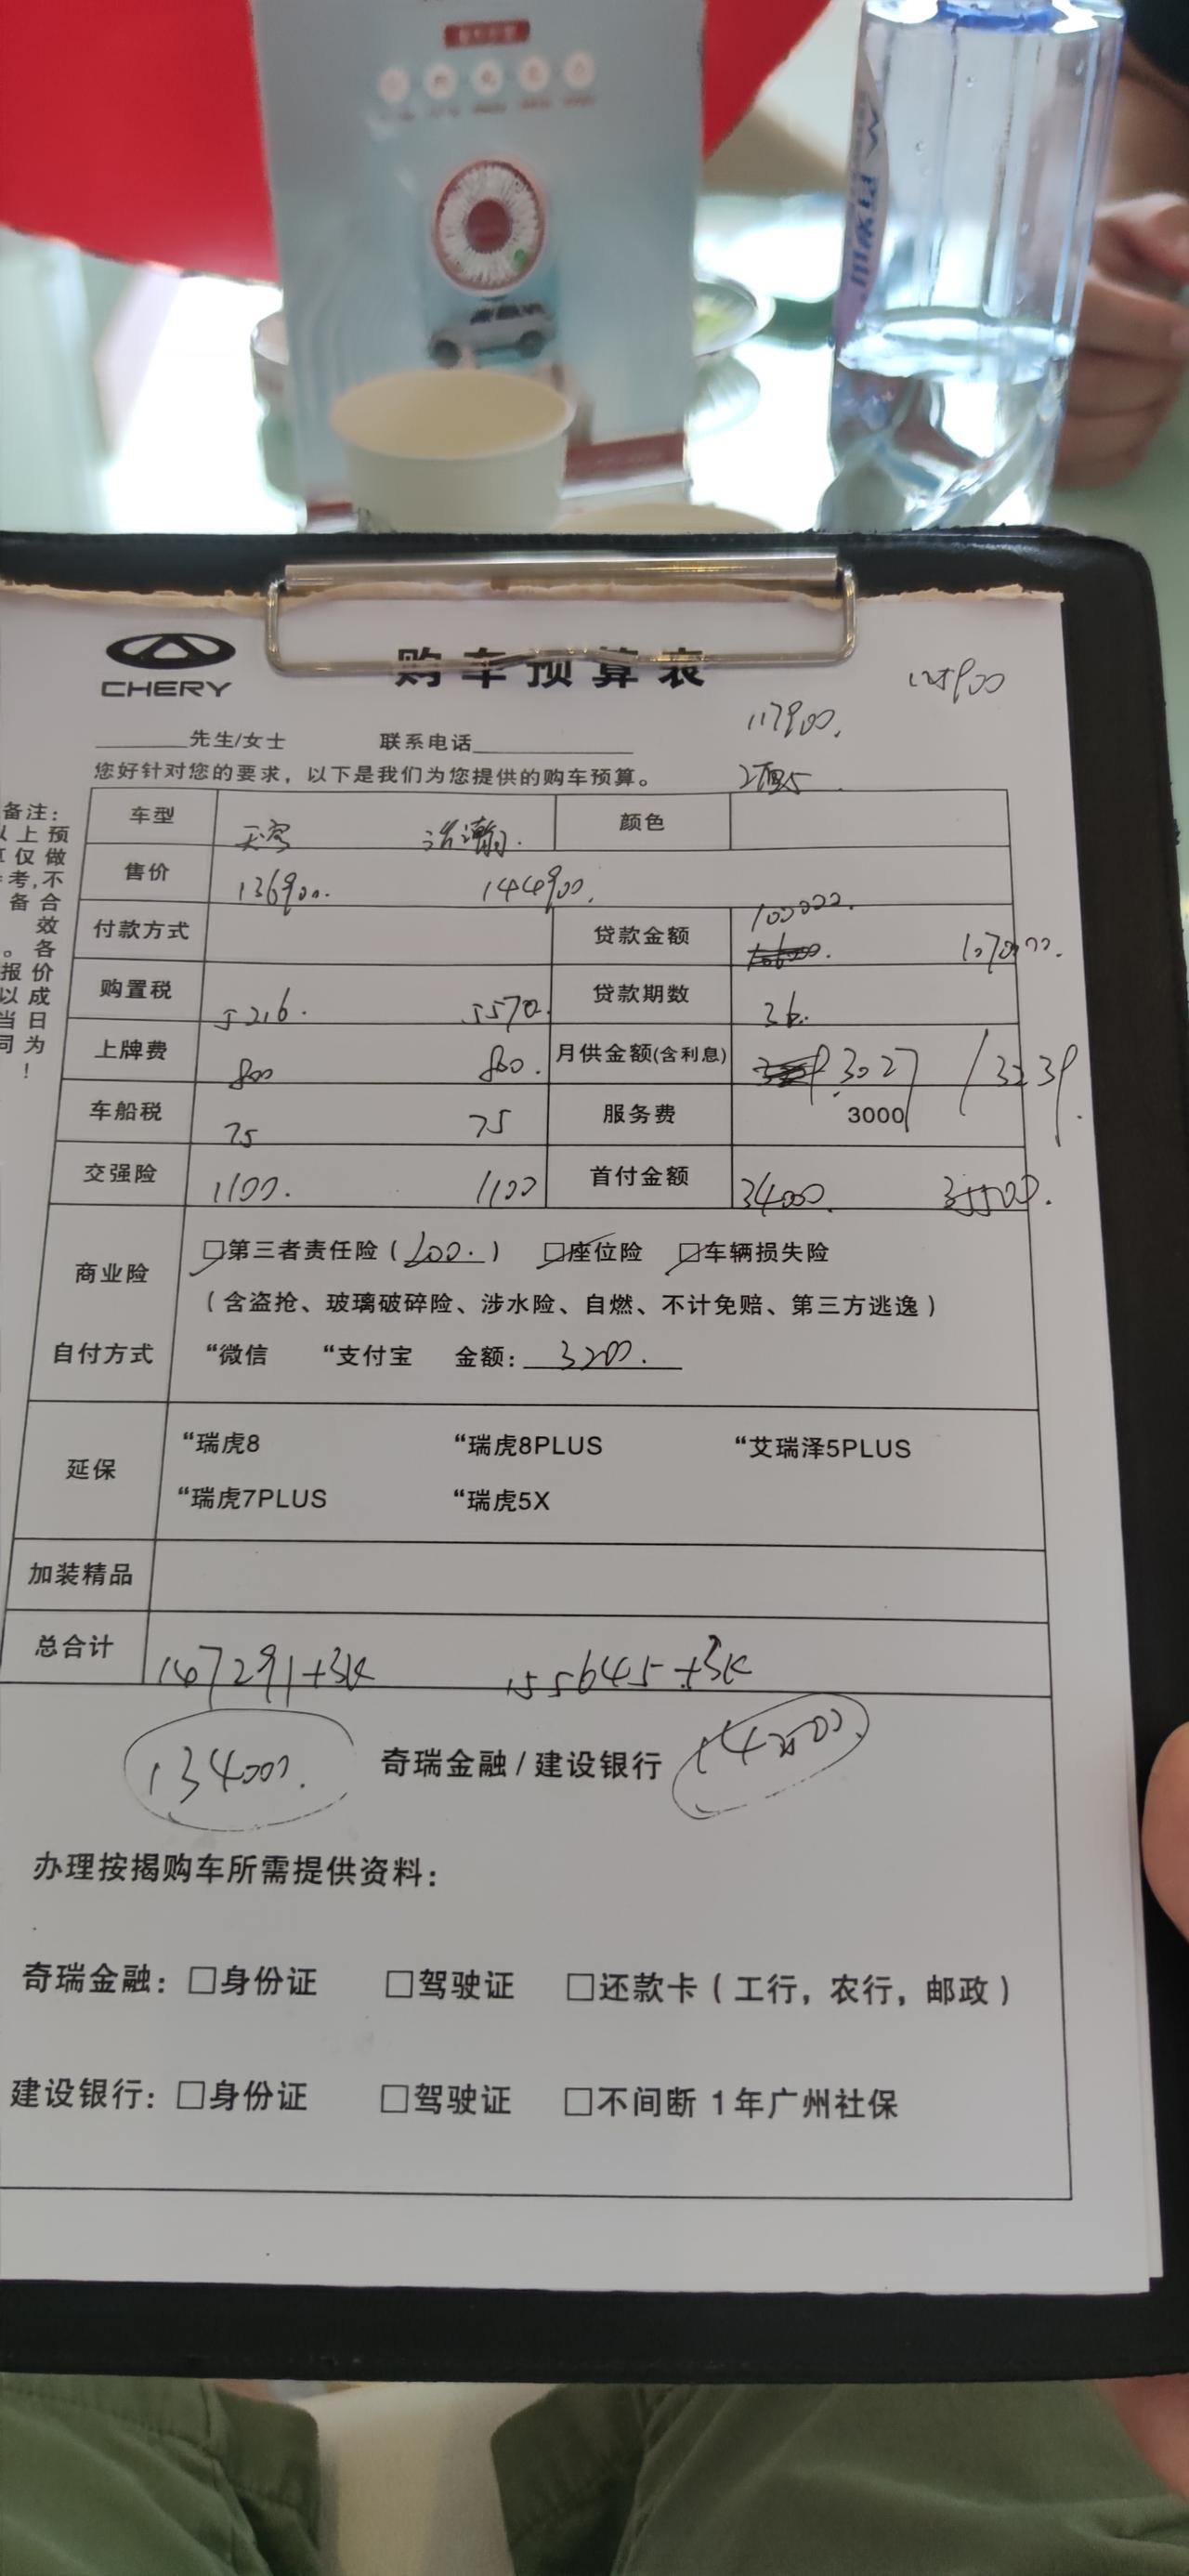 CHERY
购车预算表
125900
117900.
先生/女士 联系电话
您好针对您的要求，以下是我们为您提供的购车预算。
备注：
以上预
算仅做
参考,不
备合
效
。各
报价
以成
当日
同为
！
车型 天穹 浩瀚. 颜色
售价 136900. 144900.
付款方式 贷款金额 100000. 107000.
购置税 5216. 5570. 贷款期数 36.
上牌费 800 800. 月供金额(含利息) 3027 / 3239.
车船税 75 75 服务费 3000
交强险 1100. 1100 首付金额 34000. 35500.
商业险 □第三者责任险（200.） □座位险 □车辆损失险
（含盗抢、玻璃破碎险、涉水险、自燃、不计免赔、第三方逃逸）
自付方式 “微信 “支付宝 金额：3200.
延保 “瑞虎8 “瑞虎8PLUS “艾瑞泽5PLUS
“瑞虎7PLUS “瑞虎5X
加装精品
总合计 147291+3K 155645+3K
134000. 奇瑞金融/建设银行 142500.
办理按揭购车所需提供资料：
奇瑞金融：□身份证 □驾驶证 □还款卡（工行，农行，邮政）
建设银行：□身份证 □驾驶证 □不间断 1年广州社保